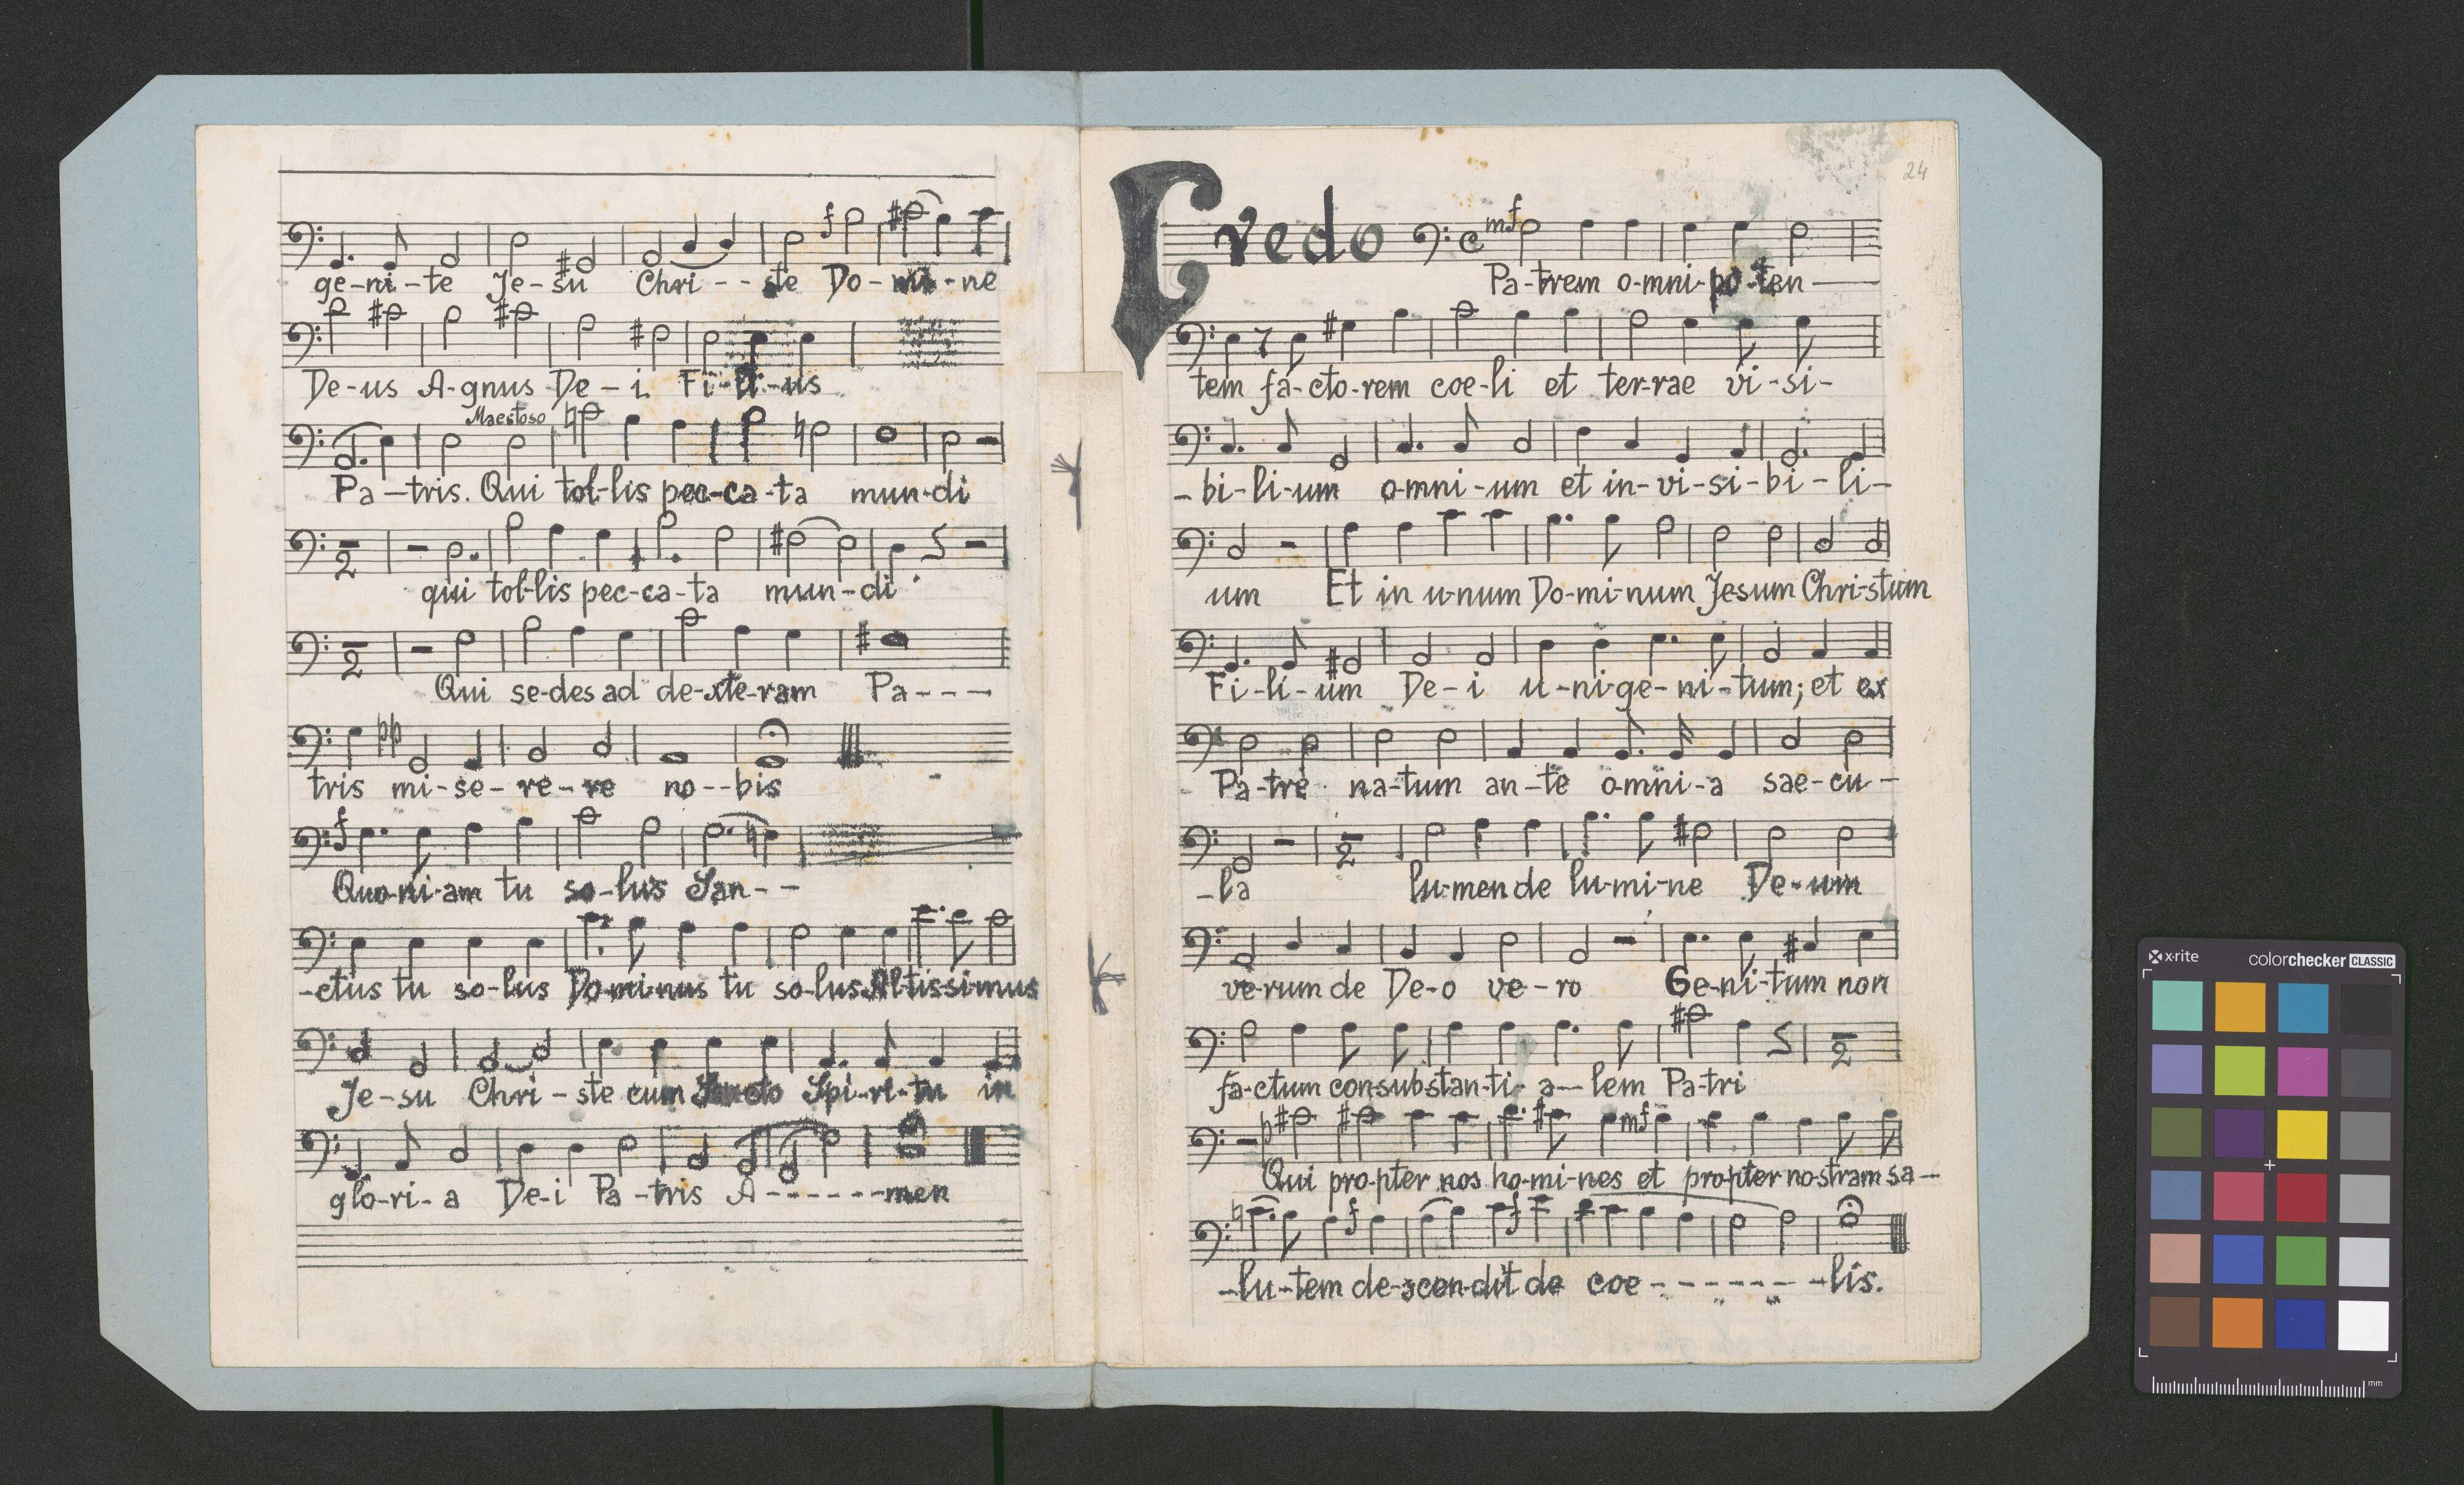 ge-ni-te Je-su Chri--ste Do-mi-ne
De-us A-gnus De-i Fi-li-us
Maestoso
Pa-tris. Qui tol-lis pec-ca-ta mun-di
qui tol-lis pec-ca-ta mun-di
Qui se-des ad de-xte-ram Pa---
pp
tris mi-se-re-re no--bis
f
Quo-ni-am tu so-lus San--
-ctus tu so-lus Do-mi-nus tu so-lus Al-tis-si-mus
Je-su Chri-ste cum Sancto Spi-ri-tu in
glo-ri-a De-i Pa-tris A------men
24
Credo
mf
Pa-trem o-mni-po-ten
tem fa-cto-rem coe-li et ter-rae vi-si-
-bi-li-um o-mni-um et in-vi-si-bi-li-
um Et in u-num Do-mi-num Jesum Chri-stum
Fi-li-um De-i u-ni-ge-ni-tum; et ex
Pa-tre na-tum an-te o-mni-a sae-cu-
-la lu-men de lu-mi-ne De-um
ve-rum de De-o ve-ro Ge-ni-tum non
fa-ctum con-sub-stan-ti-a-lem Pa-tri
p mf
Qui pro-pter nos ho-mi-nes et pro-pter no-stram sa-
f f
-lu-tem de-scen-dit de coe-------lis.
x-rite colorchecker CLASSIC
mm